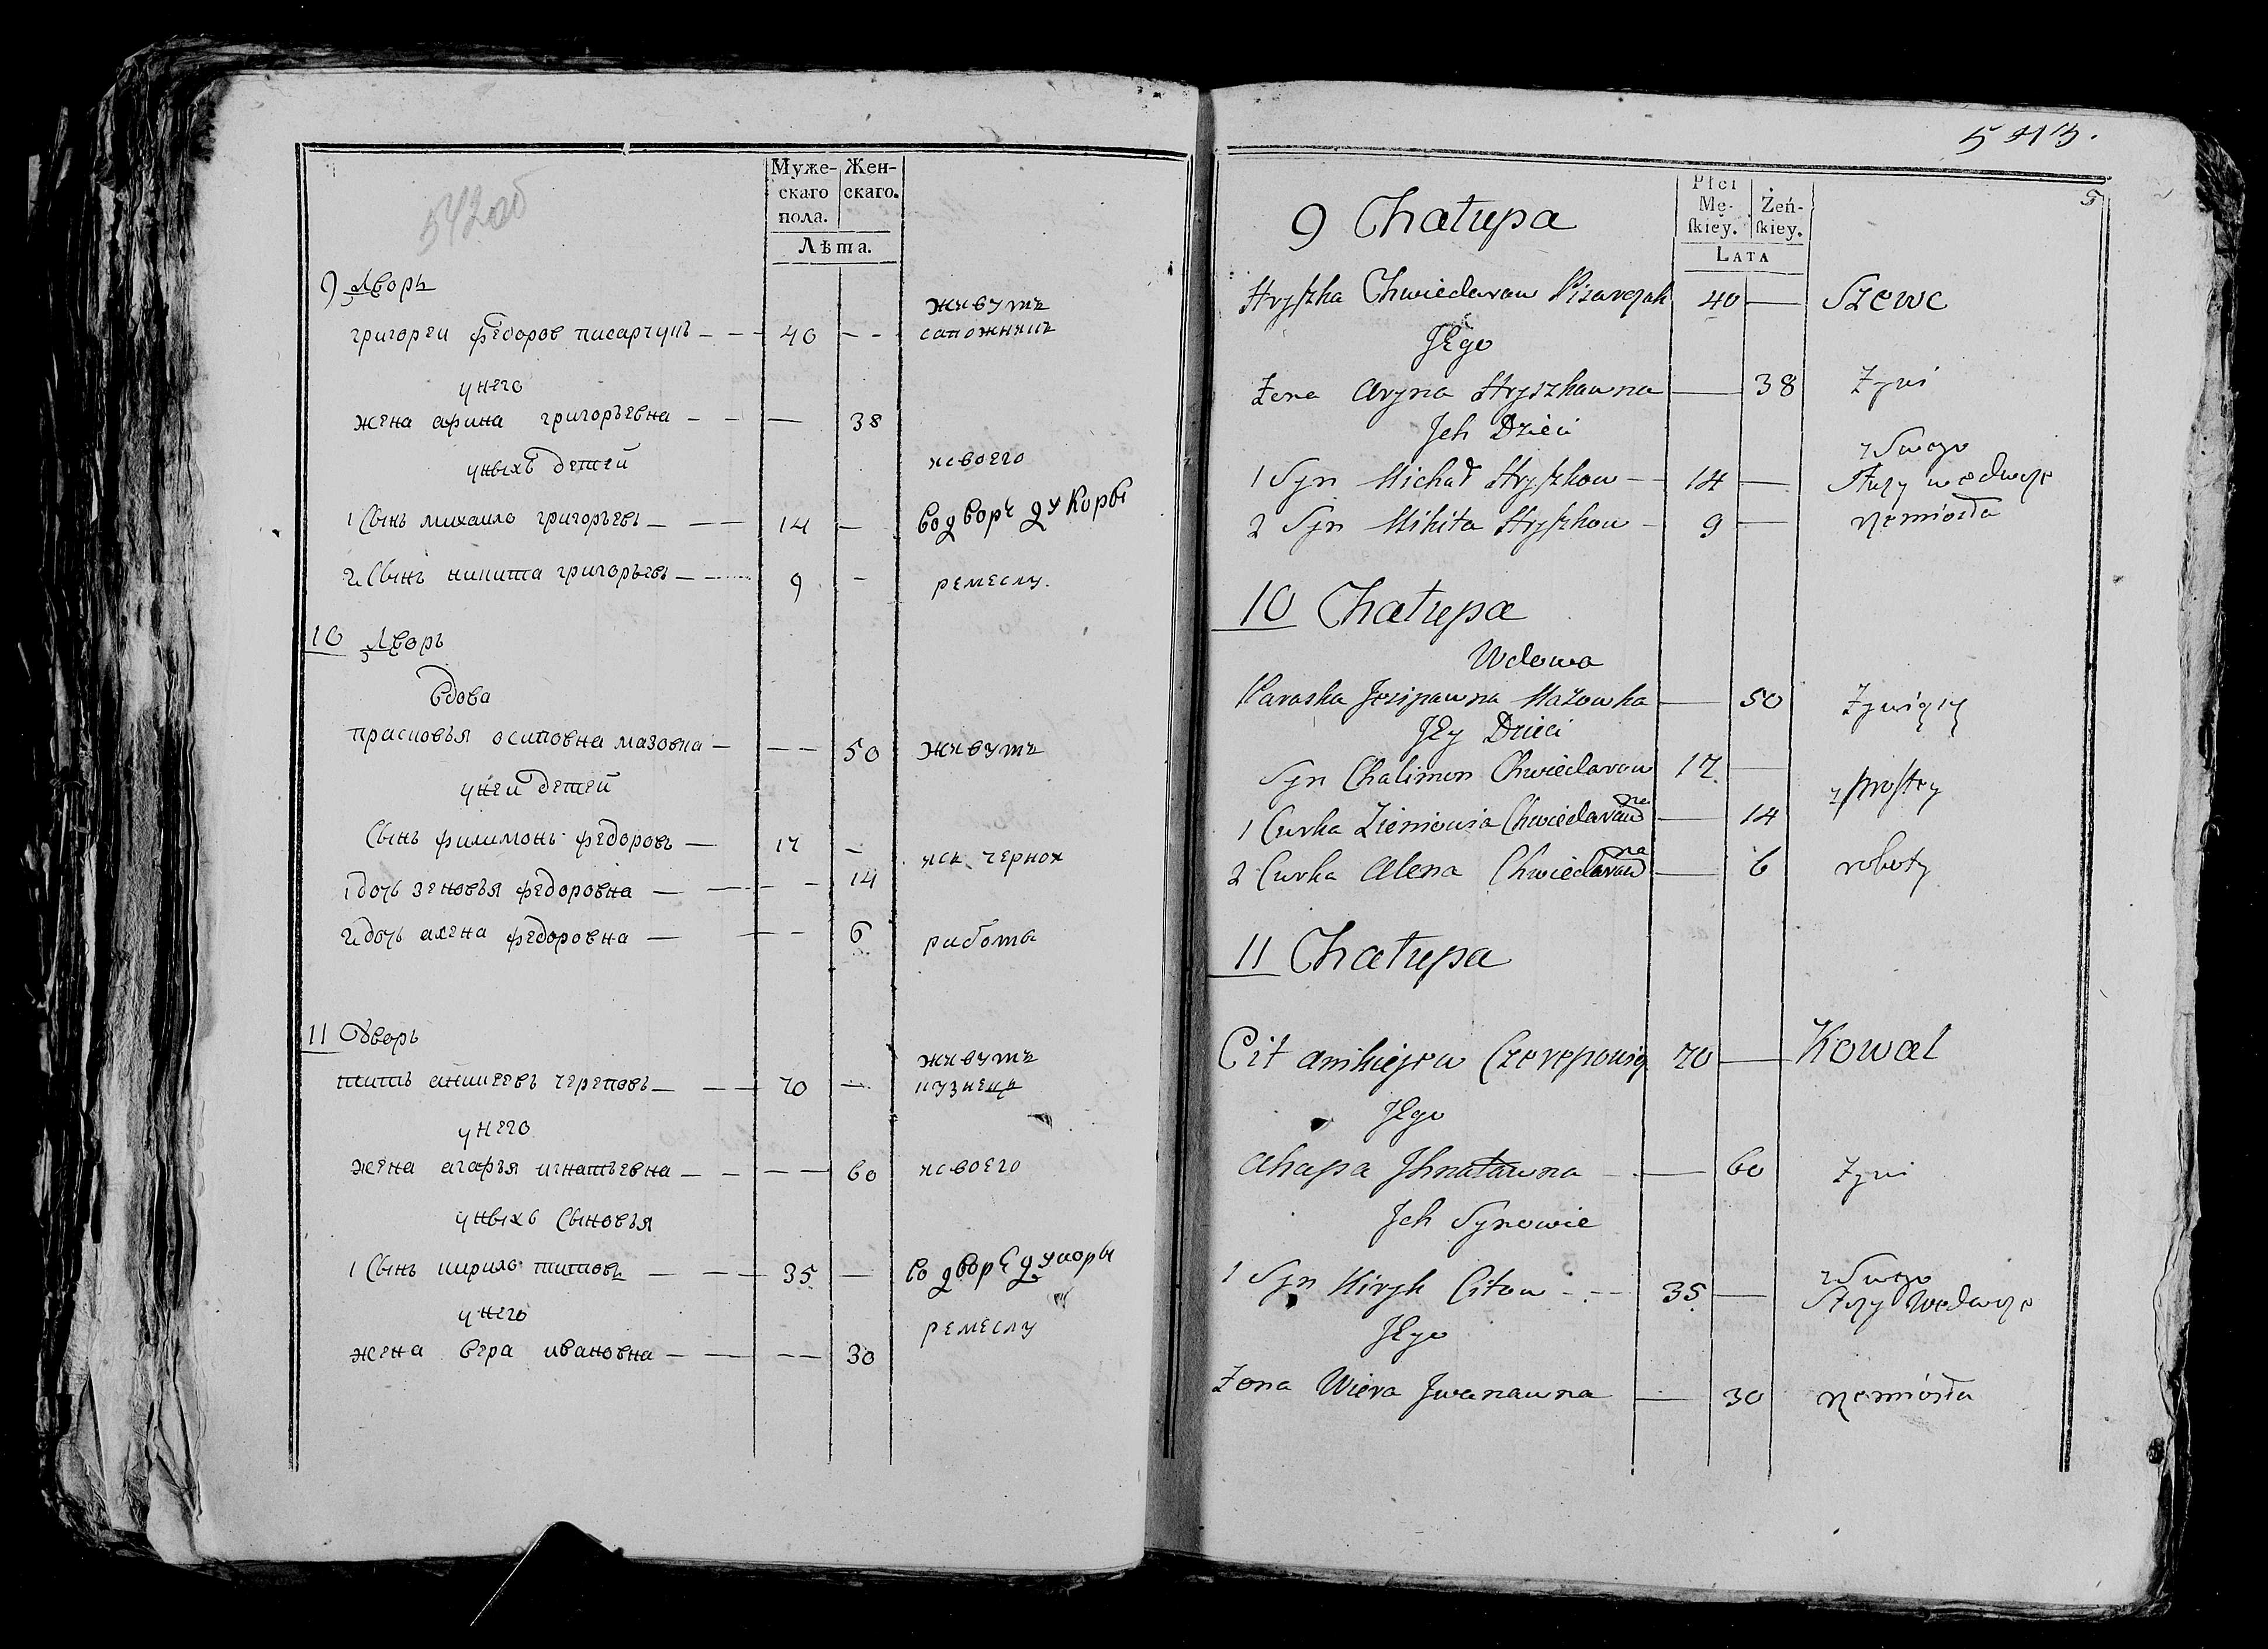 542об
Муже- Жен-
скаго скаго.
пола.
Лѣта.
9 Дворъ
живутъ
григореи федоров писарчукъ 40 сапожникъ
унего
жена арина григорьевна 38
уныхъ детей исвоего
1 Сынъ михаило григорьевъ 14 водворе
2 Сынъ никита григорьевъ 9 ремеслу.
10 Дворъ
вдова
прасковья осиповна мазовка 50 живутъ
уней детей
Сынъ филимонъ федоровъ 17
1 дочь зеновья федоровна 14 чернои
2 дочь алена федоровна 6 работы
11 Дворъ
живутъ
титъ аникеевъ череповъ 70 кузнецъ
унего
жена агафья игнатьевна 60 исвоего
уныхъ Сыновья
1 Сынъ кирило титовъ 35 во дворе
унего
ремеслу
жена вера ивановна 30
543.
Płci
Mę- Żeń-
ſkiey. ſkiey.
LATA
9 Chałupa
Hryſzka Chwiedaraw Pisarczuk 40 Szewc
JEgo
Żona Aryna Hryszkawna 38 Żywi
Jch Dzieci
z Swego
1 Syn Michał Hryſzkow 14 Słuzy wedworze
2 Syn Mikita Hryſzkow 9 rzemiosła
10 Chałupa
Wdowa
Paraska Jozipawna Mazowka 50 Żywiących
JEy Dzieci
Syn Chalimon Chwiedaraw 17
z proſtey
1 Curka Zieniowia Chwiedarawna 14
2 Curka Alena Chwiedarawna 6 roboty
11 Chałupa
Cit Anikiejew 70 Kowal
JEgo
Ahapa Jhnatawna 60 Żywi
Jch Synowie
1 Syn Kiryk Citow 35 z Swego
Słuzy Wedworze
JEgo
Żona Wiera Jwanawna 30 rzemiosła